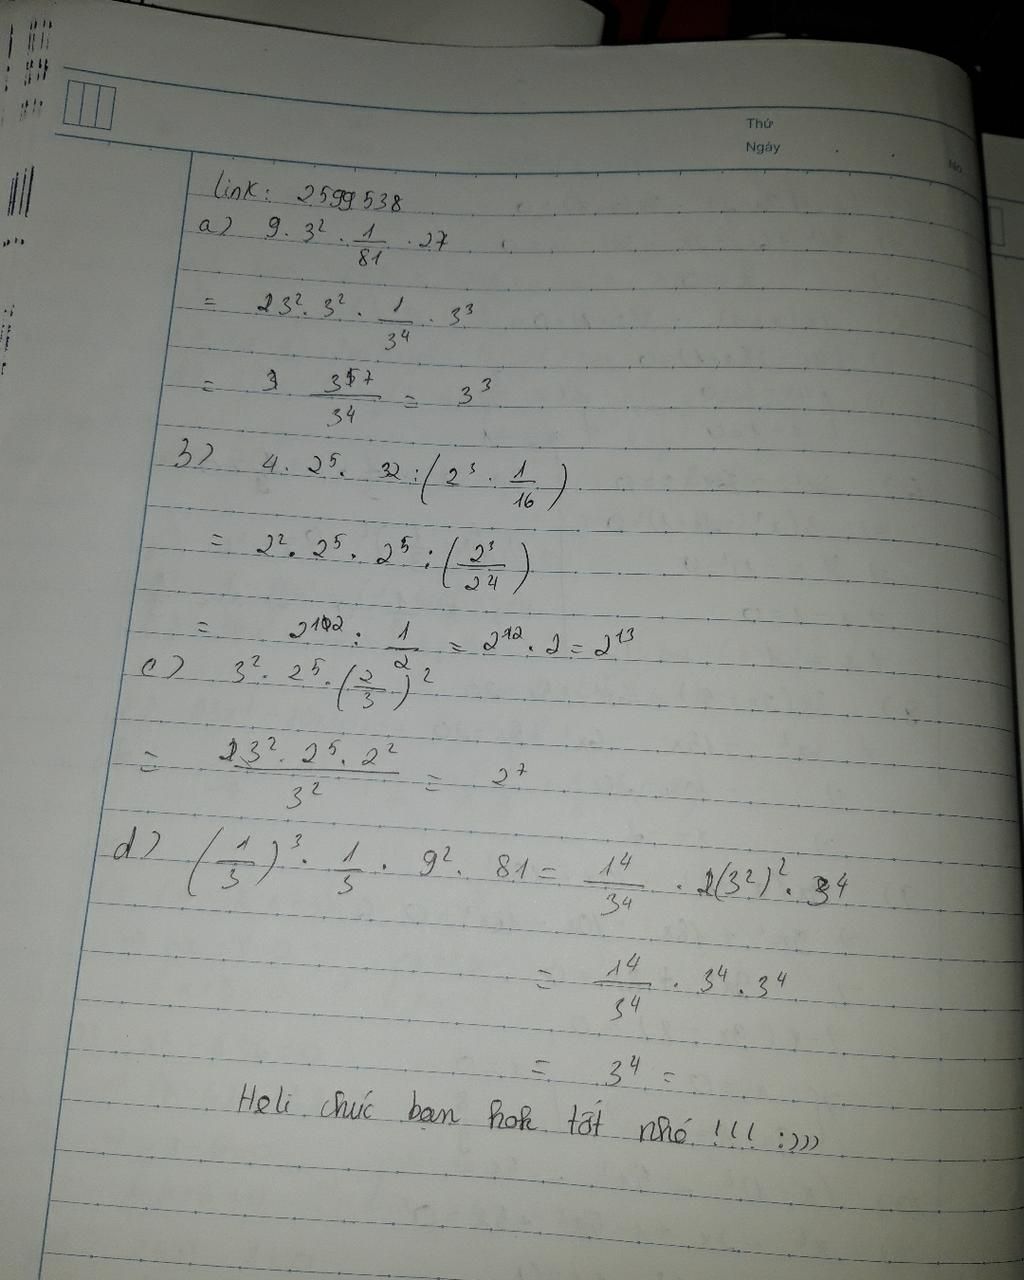 Thứ
Ngày
No
link: 2599538
a) 9 . 3² . 1/81 . 27
= 3² . 3² . 1/3⁴ . 3³
= 3⁷/3⁴ = 3³
b) 4 . 2⁵ . 32 : (2³ . 1/16)
= 2² . 2⁵ . 2⁵ : (2³/2⁴)
= 2¹² : 1/2 = 2¹² . 2 = 2¹³
c) 3² . 2⁵ . (2/3)²
= 3² . 2⁵ . 2²/3² = 2⁷
d) (1/3)³ . 1/3 . 9² . 81 = 1⁴/3⁴ . (3²)² . 3⁴
= 1⁴/3⁴ . 3⁴ . 3⁴
= 3⁴ =
Heli chúc bạn hok tốt nhó !!! :)))